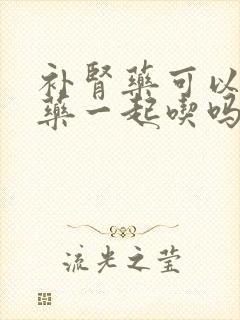 补肾药可以
药一起喫吗
流光之莹